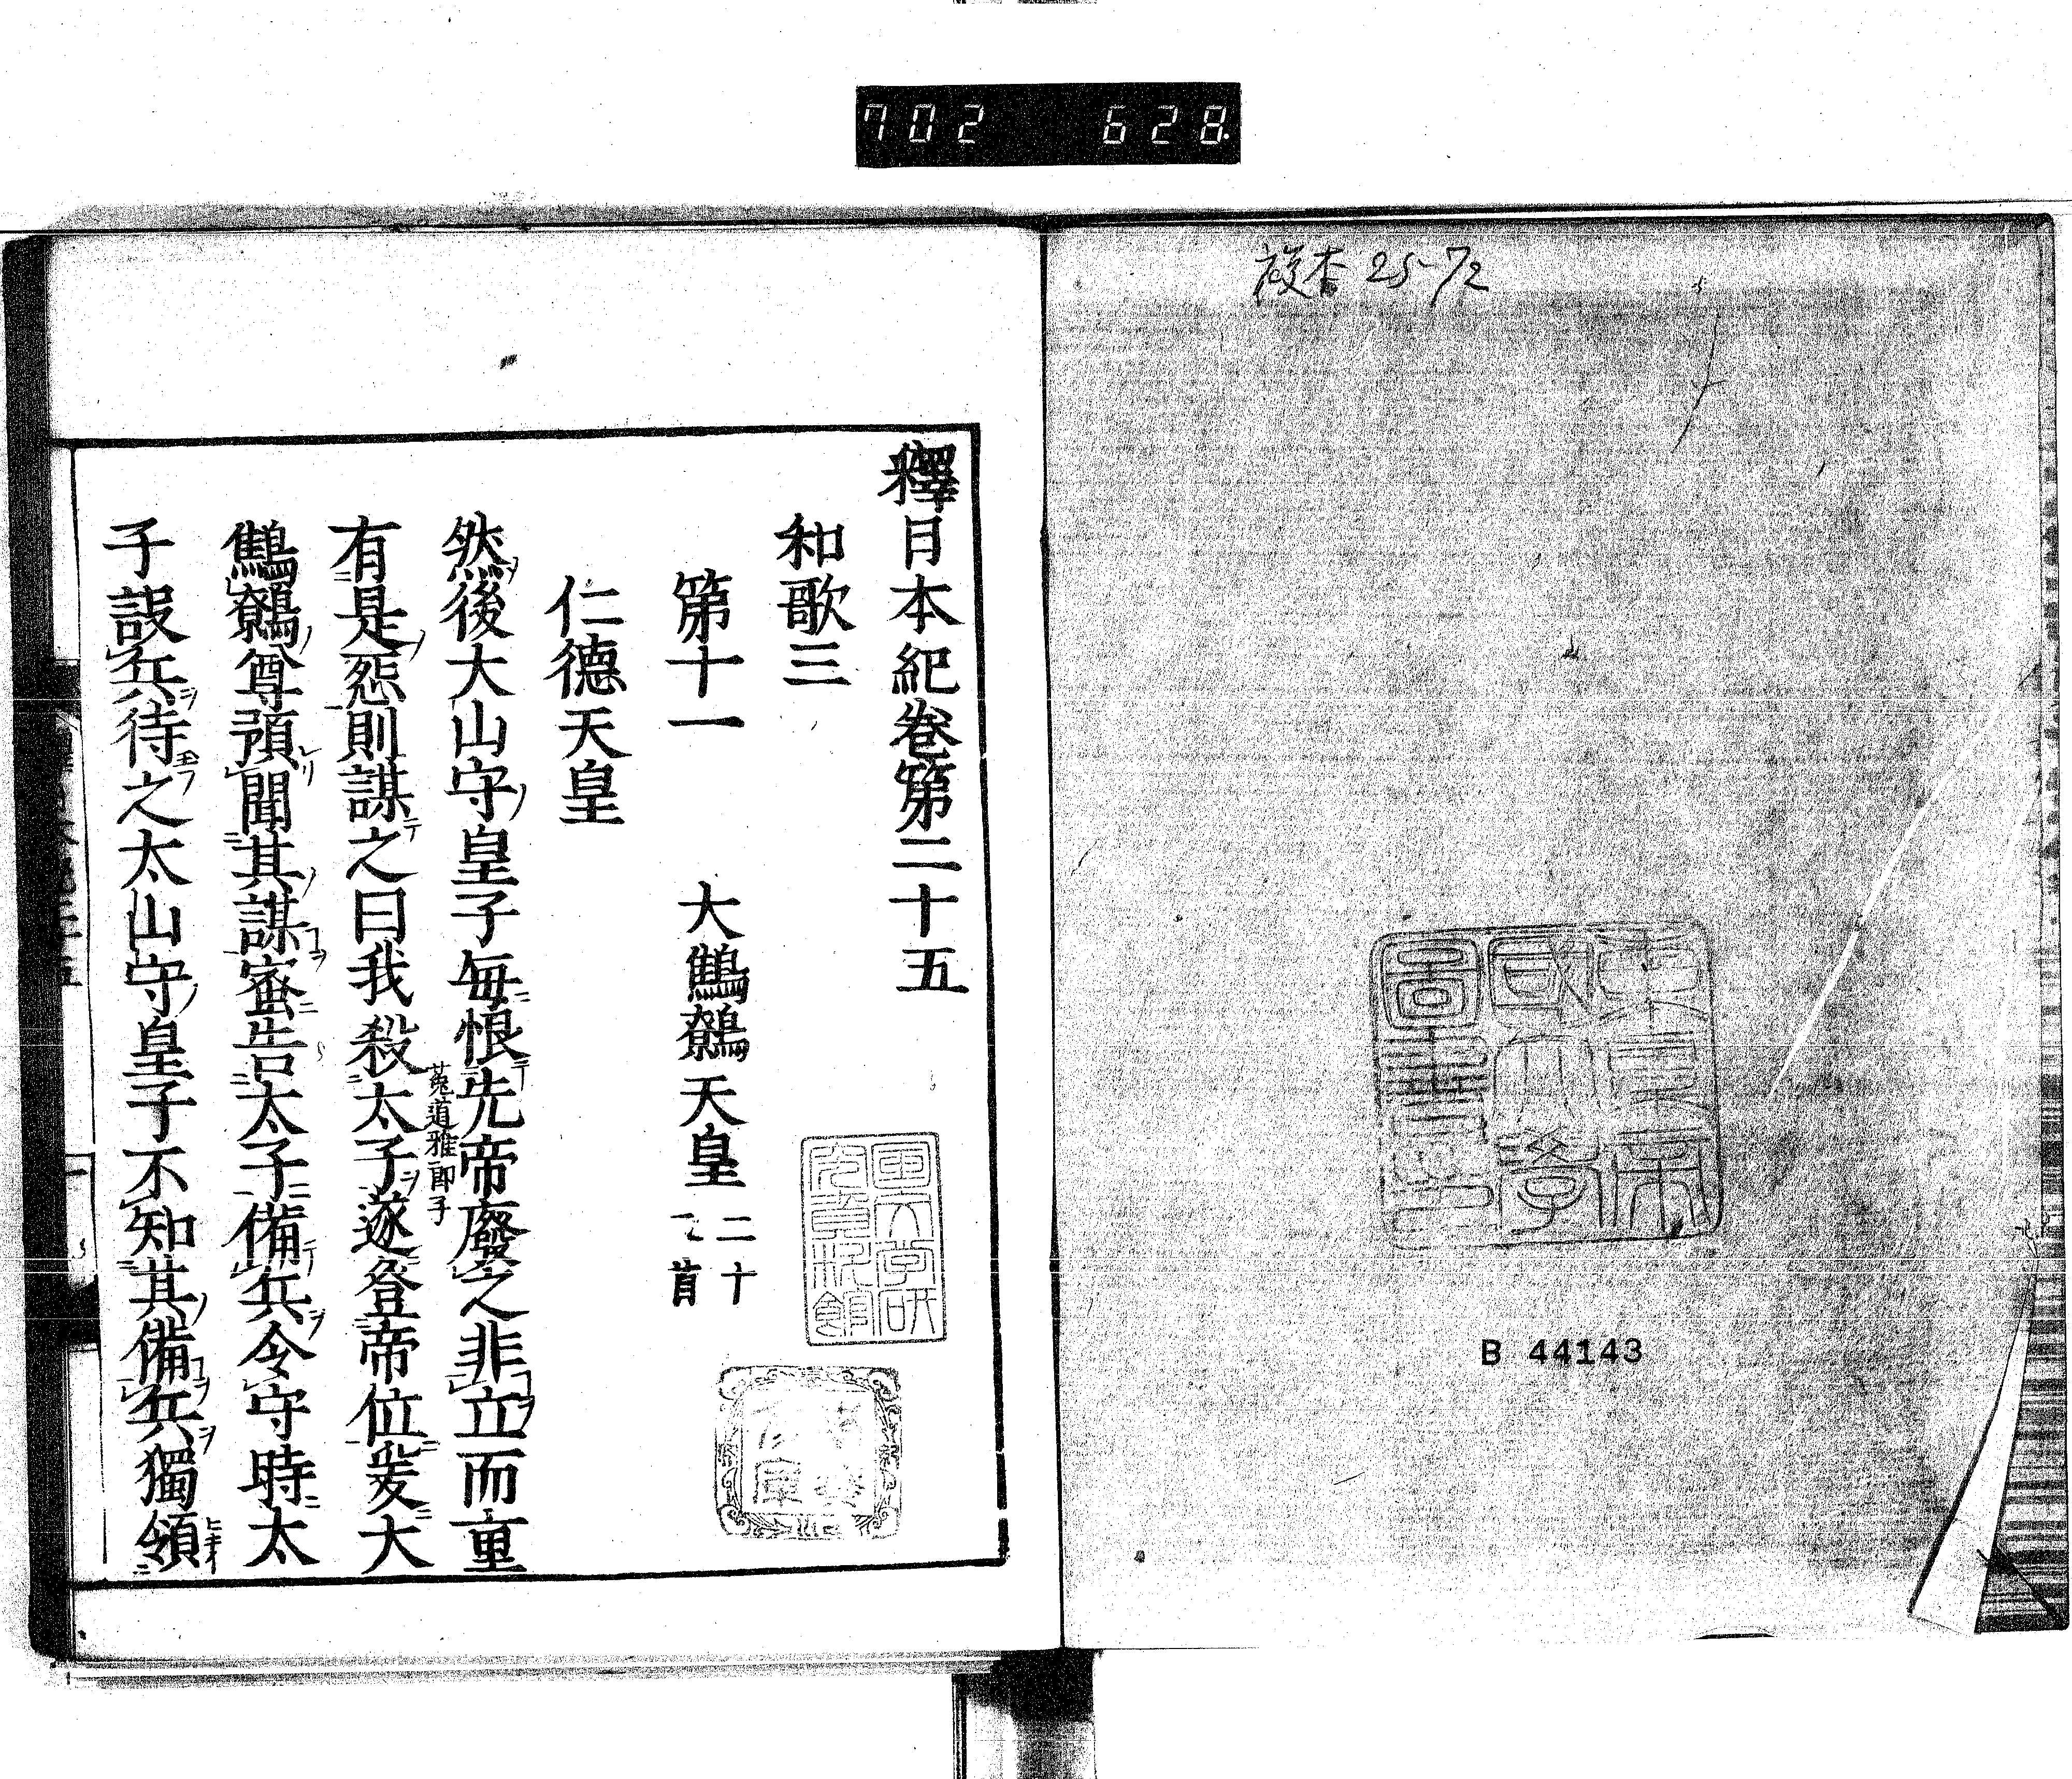 702 628
複本 25-72
B 44143
釋日本紀卷第二十五
和歌三
第十一 大鷦鷯天皇
二十
一首
仁德天皇
然後大山守皇子每恨先帝廢之非立而重
有是怨則謀之曰我殺太子遂登帝位爰大
菟道雅郎子
鷦鷯尊預聞其謀密告太子備兵令守時太
子設兵待之太山守皇子不知其備兵獨領